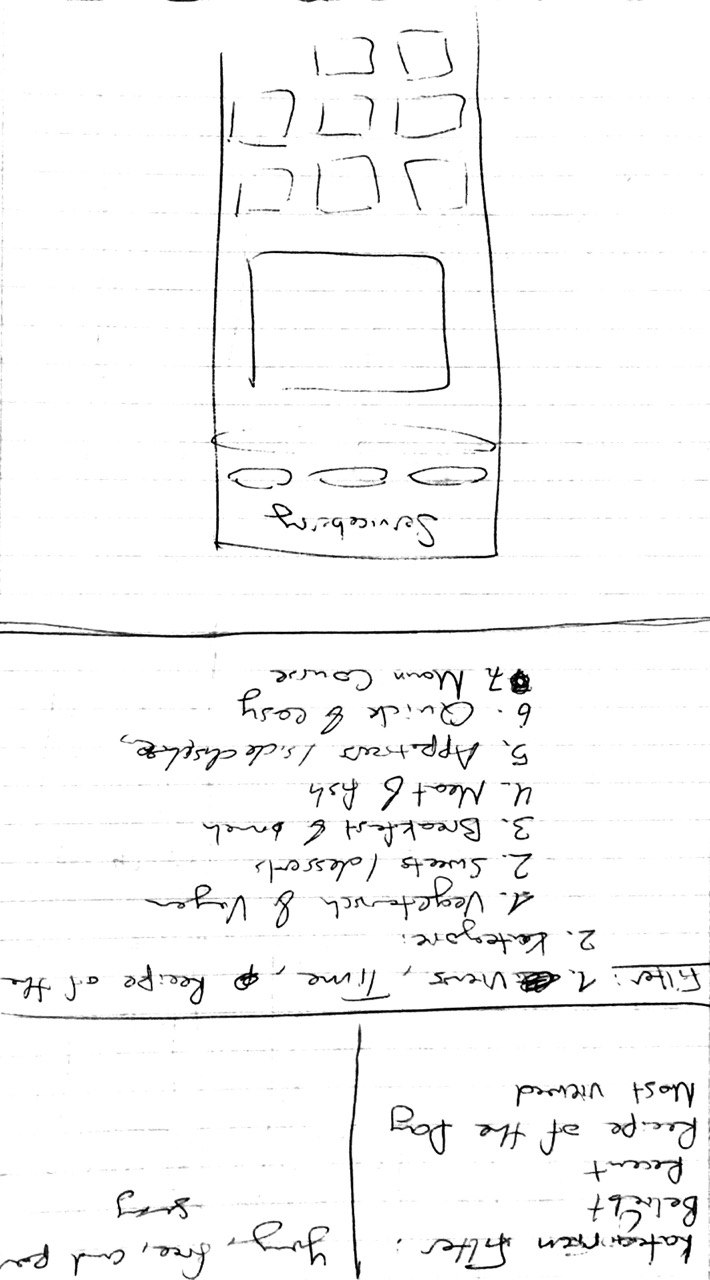 Kategorien Filter:
Beliebt
Recent
Recipe of the Day
Most viewed
Yung, free, and
sexy
Filter: 1. Views, Time, Recipe of the
2. Kategorie:
1. Vegetarisch & Vegan
2. Sweets / desserts
3. Breakfast & brunch
4. Meat & fish
5. Appetizers / side dishes
6. Quick & easy
7. Main Course
Serviceberry